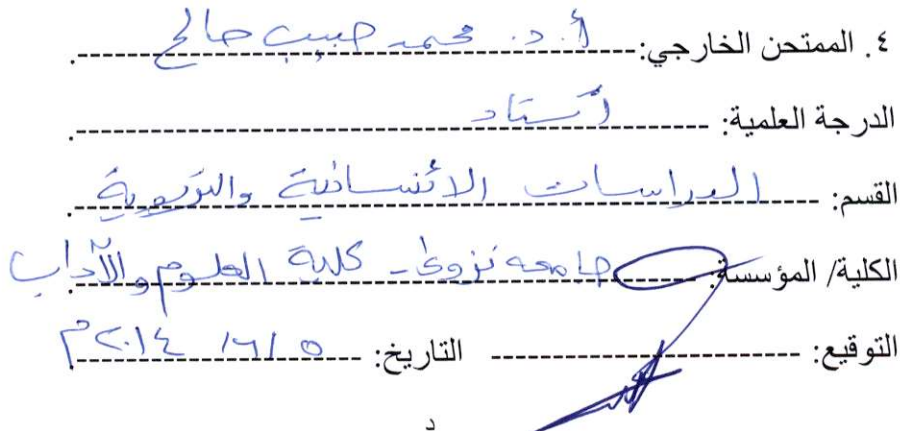 ٤. الممتحن الخارجي: أ. د. محمد حبيب صالح
الدرجة العلمية: أستاذ
القسم: الدراسات الانسانية والتربوية
الكلية/ المؤسسة: جامعه نزوى - كلية العلوم والآداب
التوقيع: التاريخ: ٥ /٦/ ٢٠١٤م
د